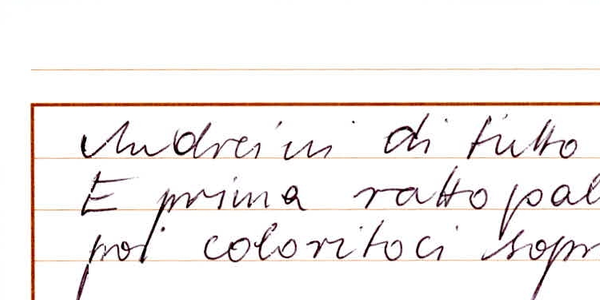 Andreini di tutto
E prima ratto pal
poi coloritoci sopr